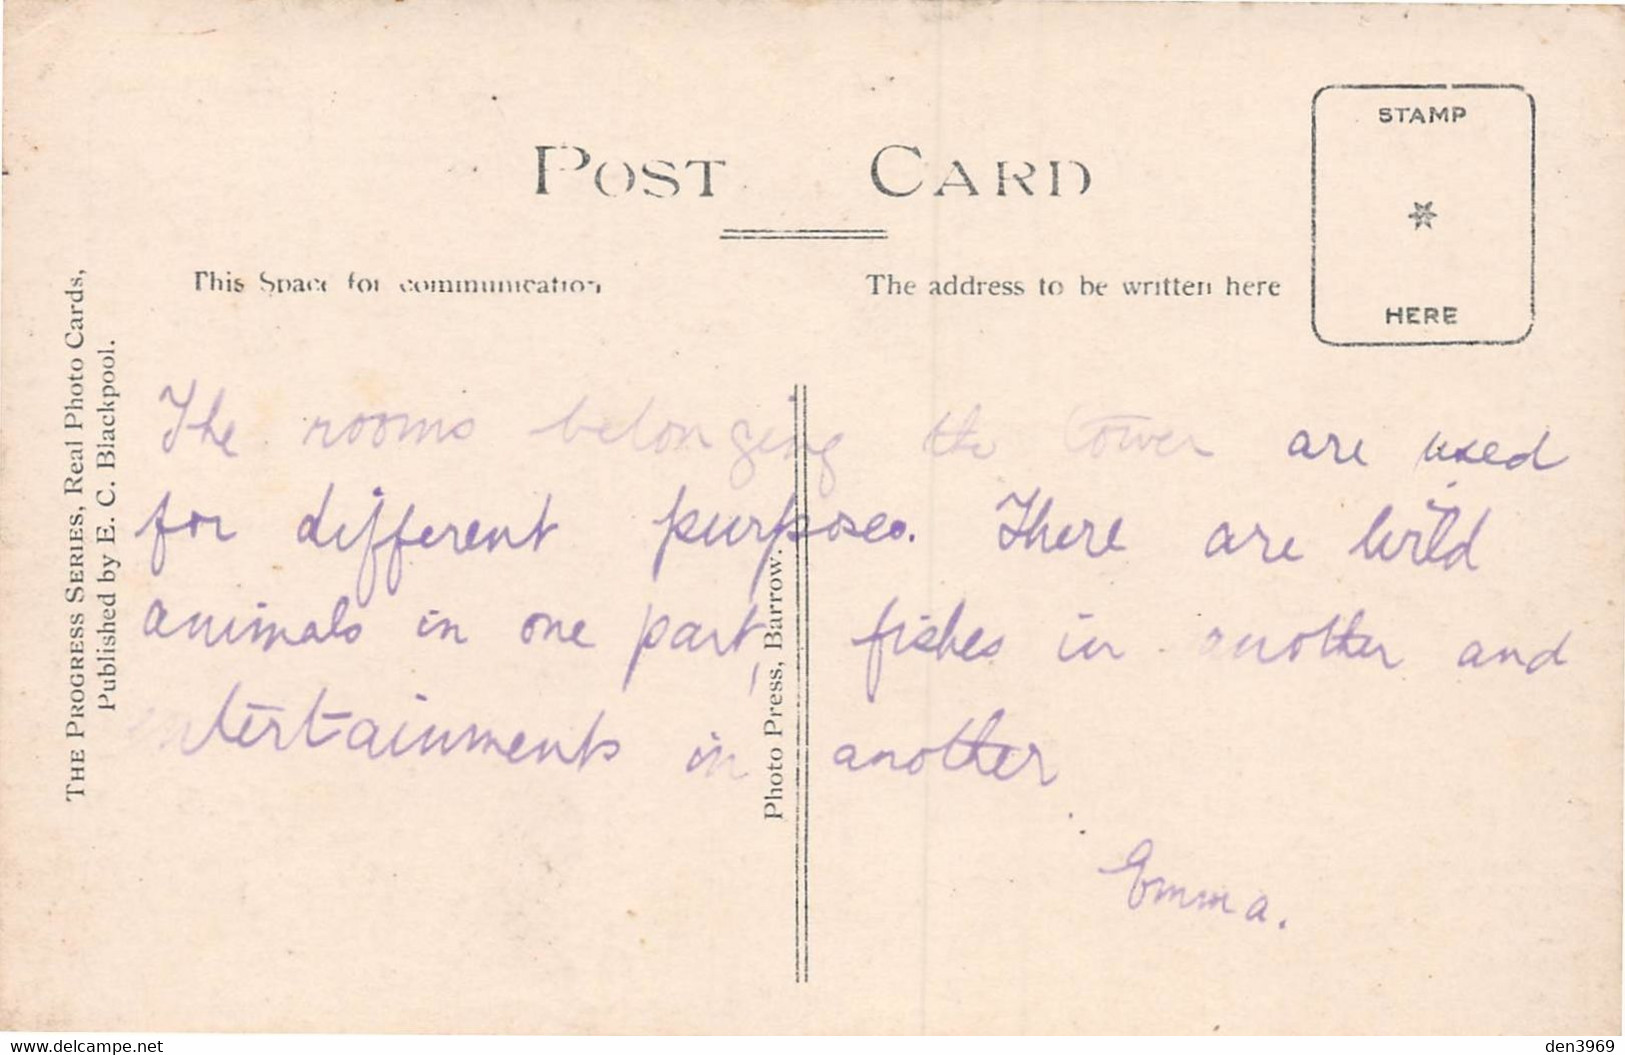 POST CARD
STAMP
HERE
This Space for communication
The address to be written here
THE PROGRESS SERIES, Real Photo Cards,
Published by E. C. Blackpool.
Photo Press, Barrow.
The rooms belonging the tower are used
for different purposes. There are wild
animals in one part, fishes in another and
entertainments in another
Emma.
www.delcampe.net
den3969